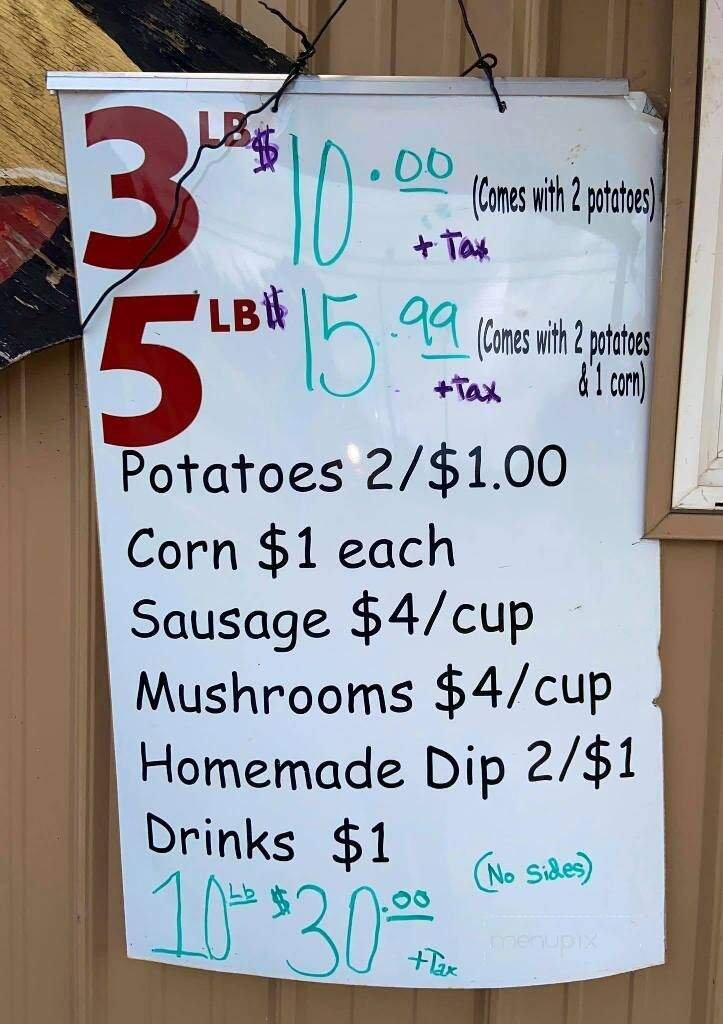 3 LB $10.00 (Comes with 2 potatoes)
+ Tax
5 LB $15.99 (Comes with 2 potatoes
& 1 corn)
+Tax
Potatoes 2/$1.00
Corn $1 each
Sausage $4/cup
Mushrooms $4/cup
Homemade Dip 2/$1
Drinks $1
(No Sides)
10 Lb $30.00
+Tax
menupix